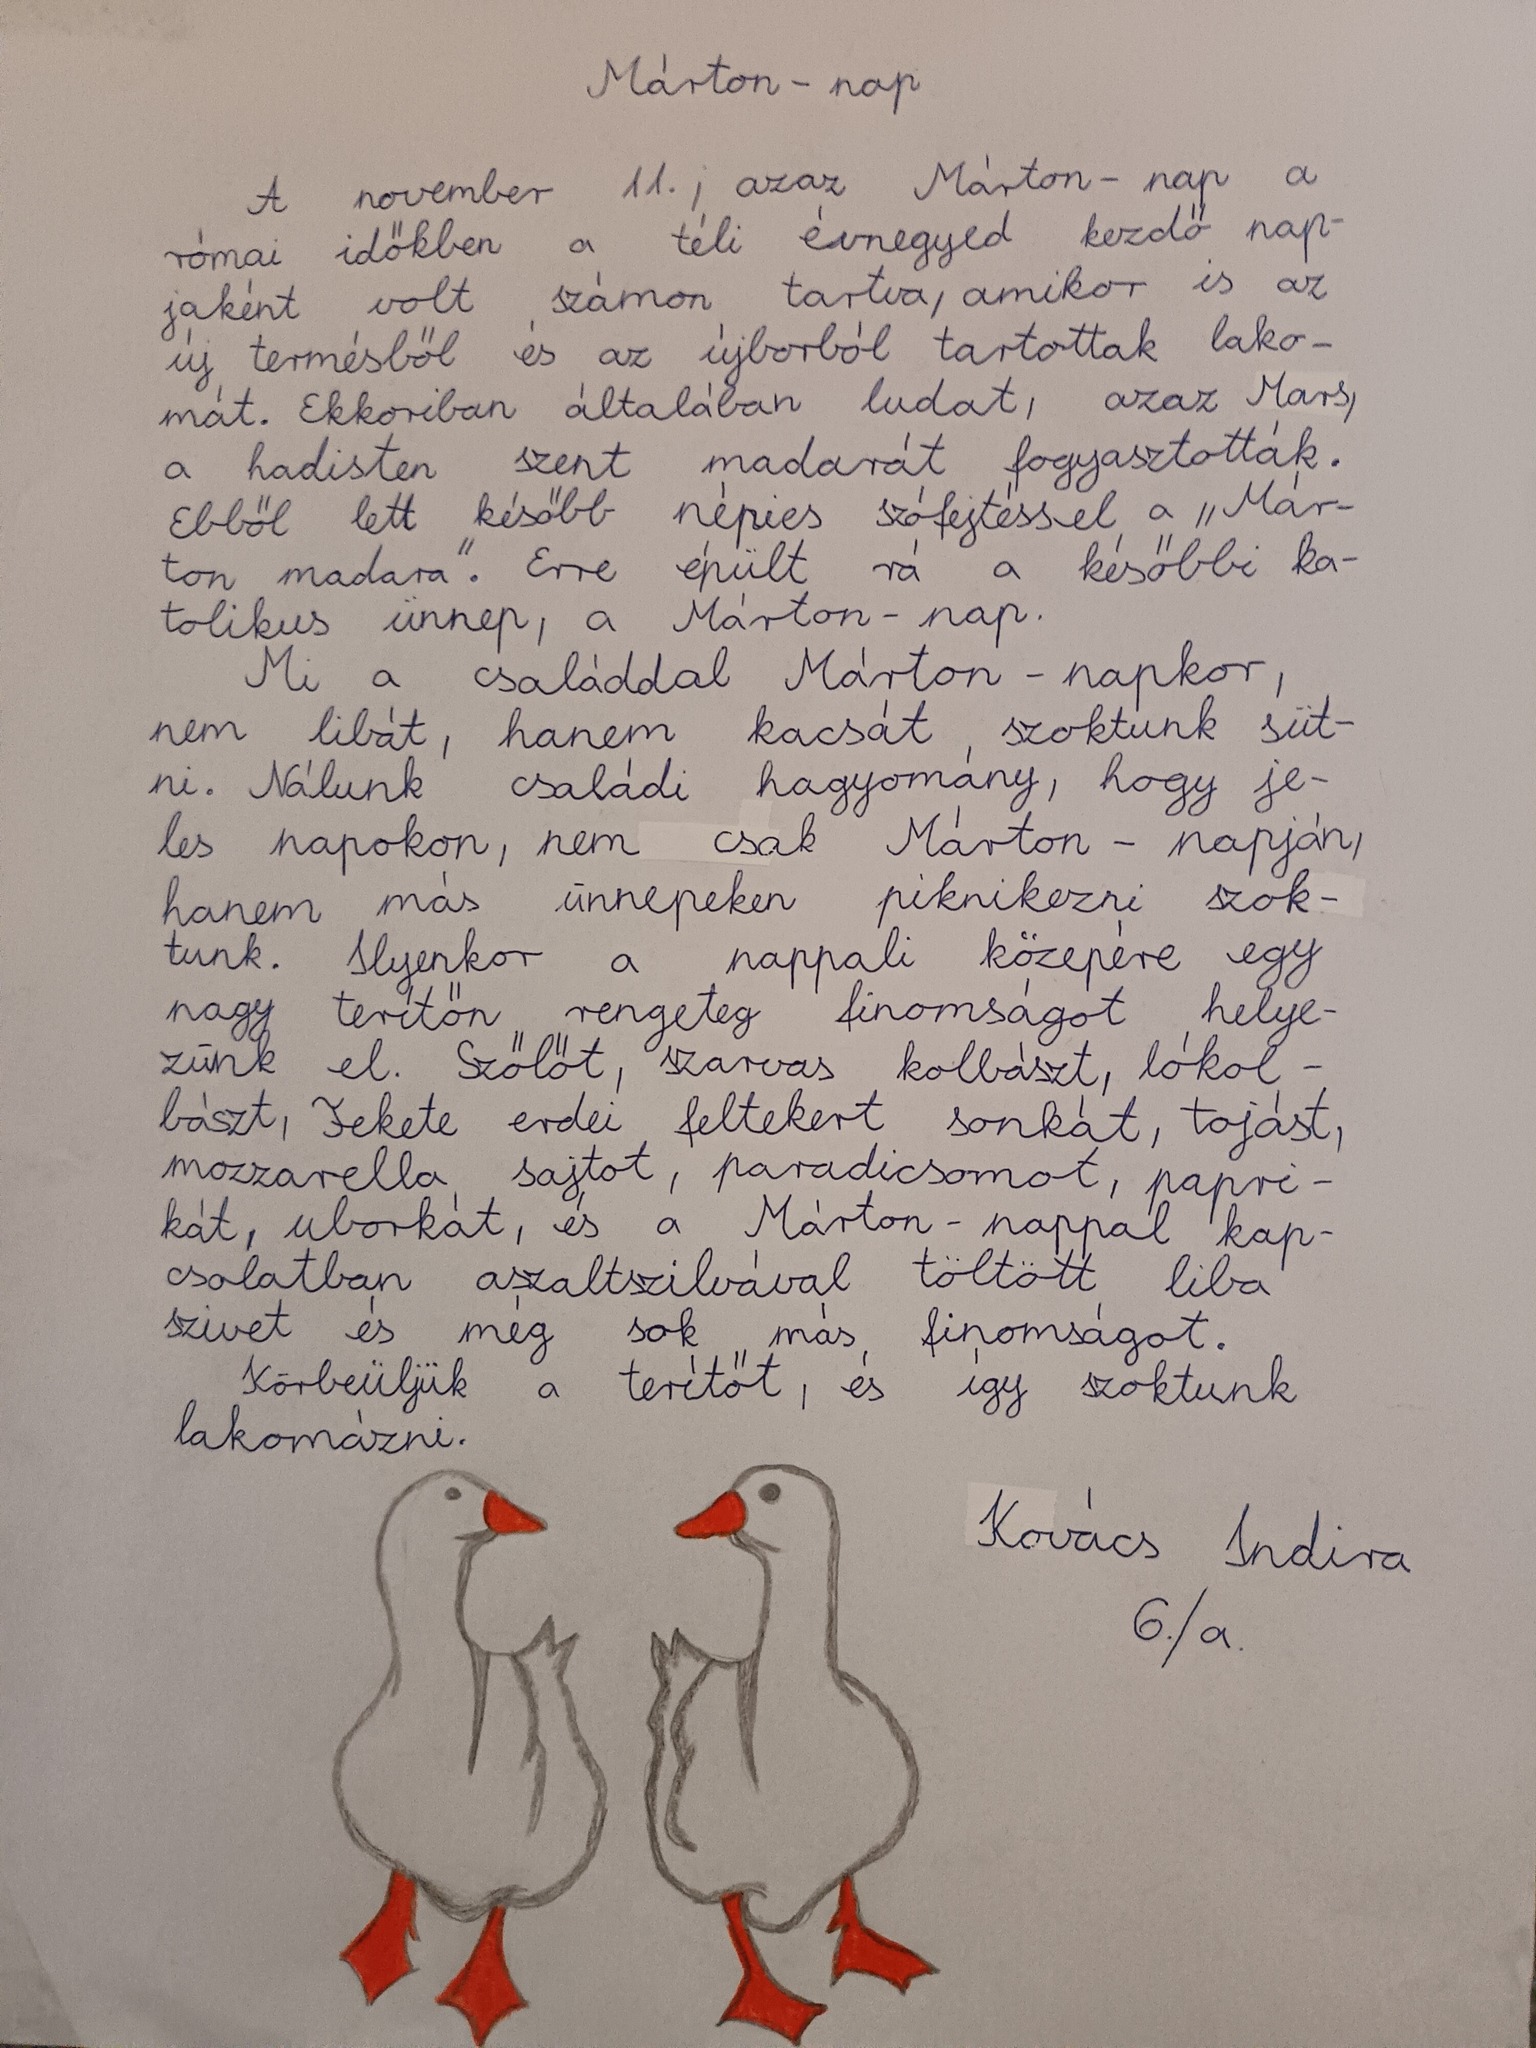 Márton-nap
A november 11., azaz Márton-nap a
római időkben a téli évnegyed kezdő nap-
jaként volt számon tartva, amikor is az
új termésből és az újborból tartottak lako-
mát. Ekkoriban általában ludat, azaz Mars,
a hadisten szent madarát fogyasztották.
Ebből lett később népies szófejtéssel a „Már-
ton madara”. Erre épült rá a későbbi ka-
tolikus ünnep, a Márton-nap.
Mi a családdal Márton-napkor,
nem libát, hanem kacsát szoktunk süt-
ni. Nálunk családi hagyomány, hogy je-
les napokon, nem csak Márton-napján,
hanem más ünnepeken piknikezni szok-
tunk. Ilyenkor a nappali közepére egy
nagy terítőn rengeteg finomságot helye-
zünk el. Szőlőt, szarvas kolbászt, lókol-
bászt, Fekete erdei feltekert sonkát, tojást,
mozzarella sajtot, paradicsomot, papri-
kát, uborkát, és a Márton-nappal kap-
csolatban aszaltszilvával töltött liba
szivet és még sok más finomságot.
Körbeüljük a terítőt, és így szoktunk
lakomázni.
Kovács Indira
6./a.